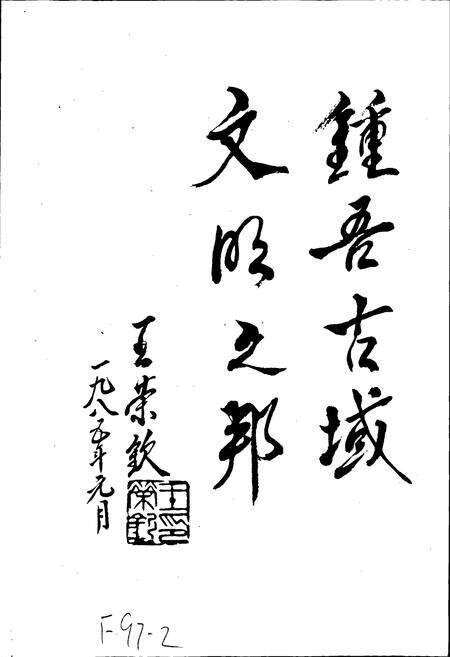 鍾吾古域
文明之邦
王荣钦
一九八五年元月
王荣钦印
F-97-2